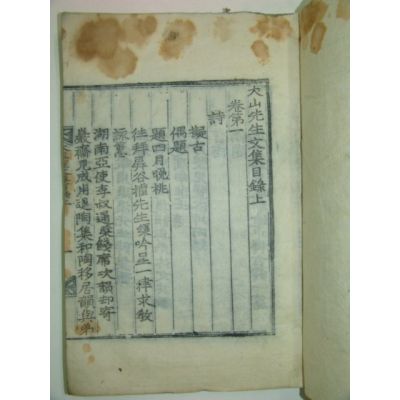 大山先生文集目錄上
卷第一
詩
擬古
偶題
題四月晩桃
往拜屛谷權先生吟呈一律求敎
詠蕙
湖南亞使李叔通餞席次韻却寄
齋用退陶集和陶移居韻與